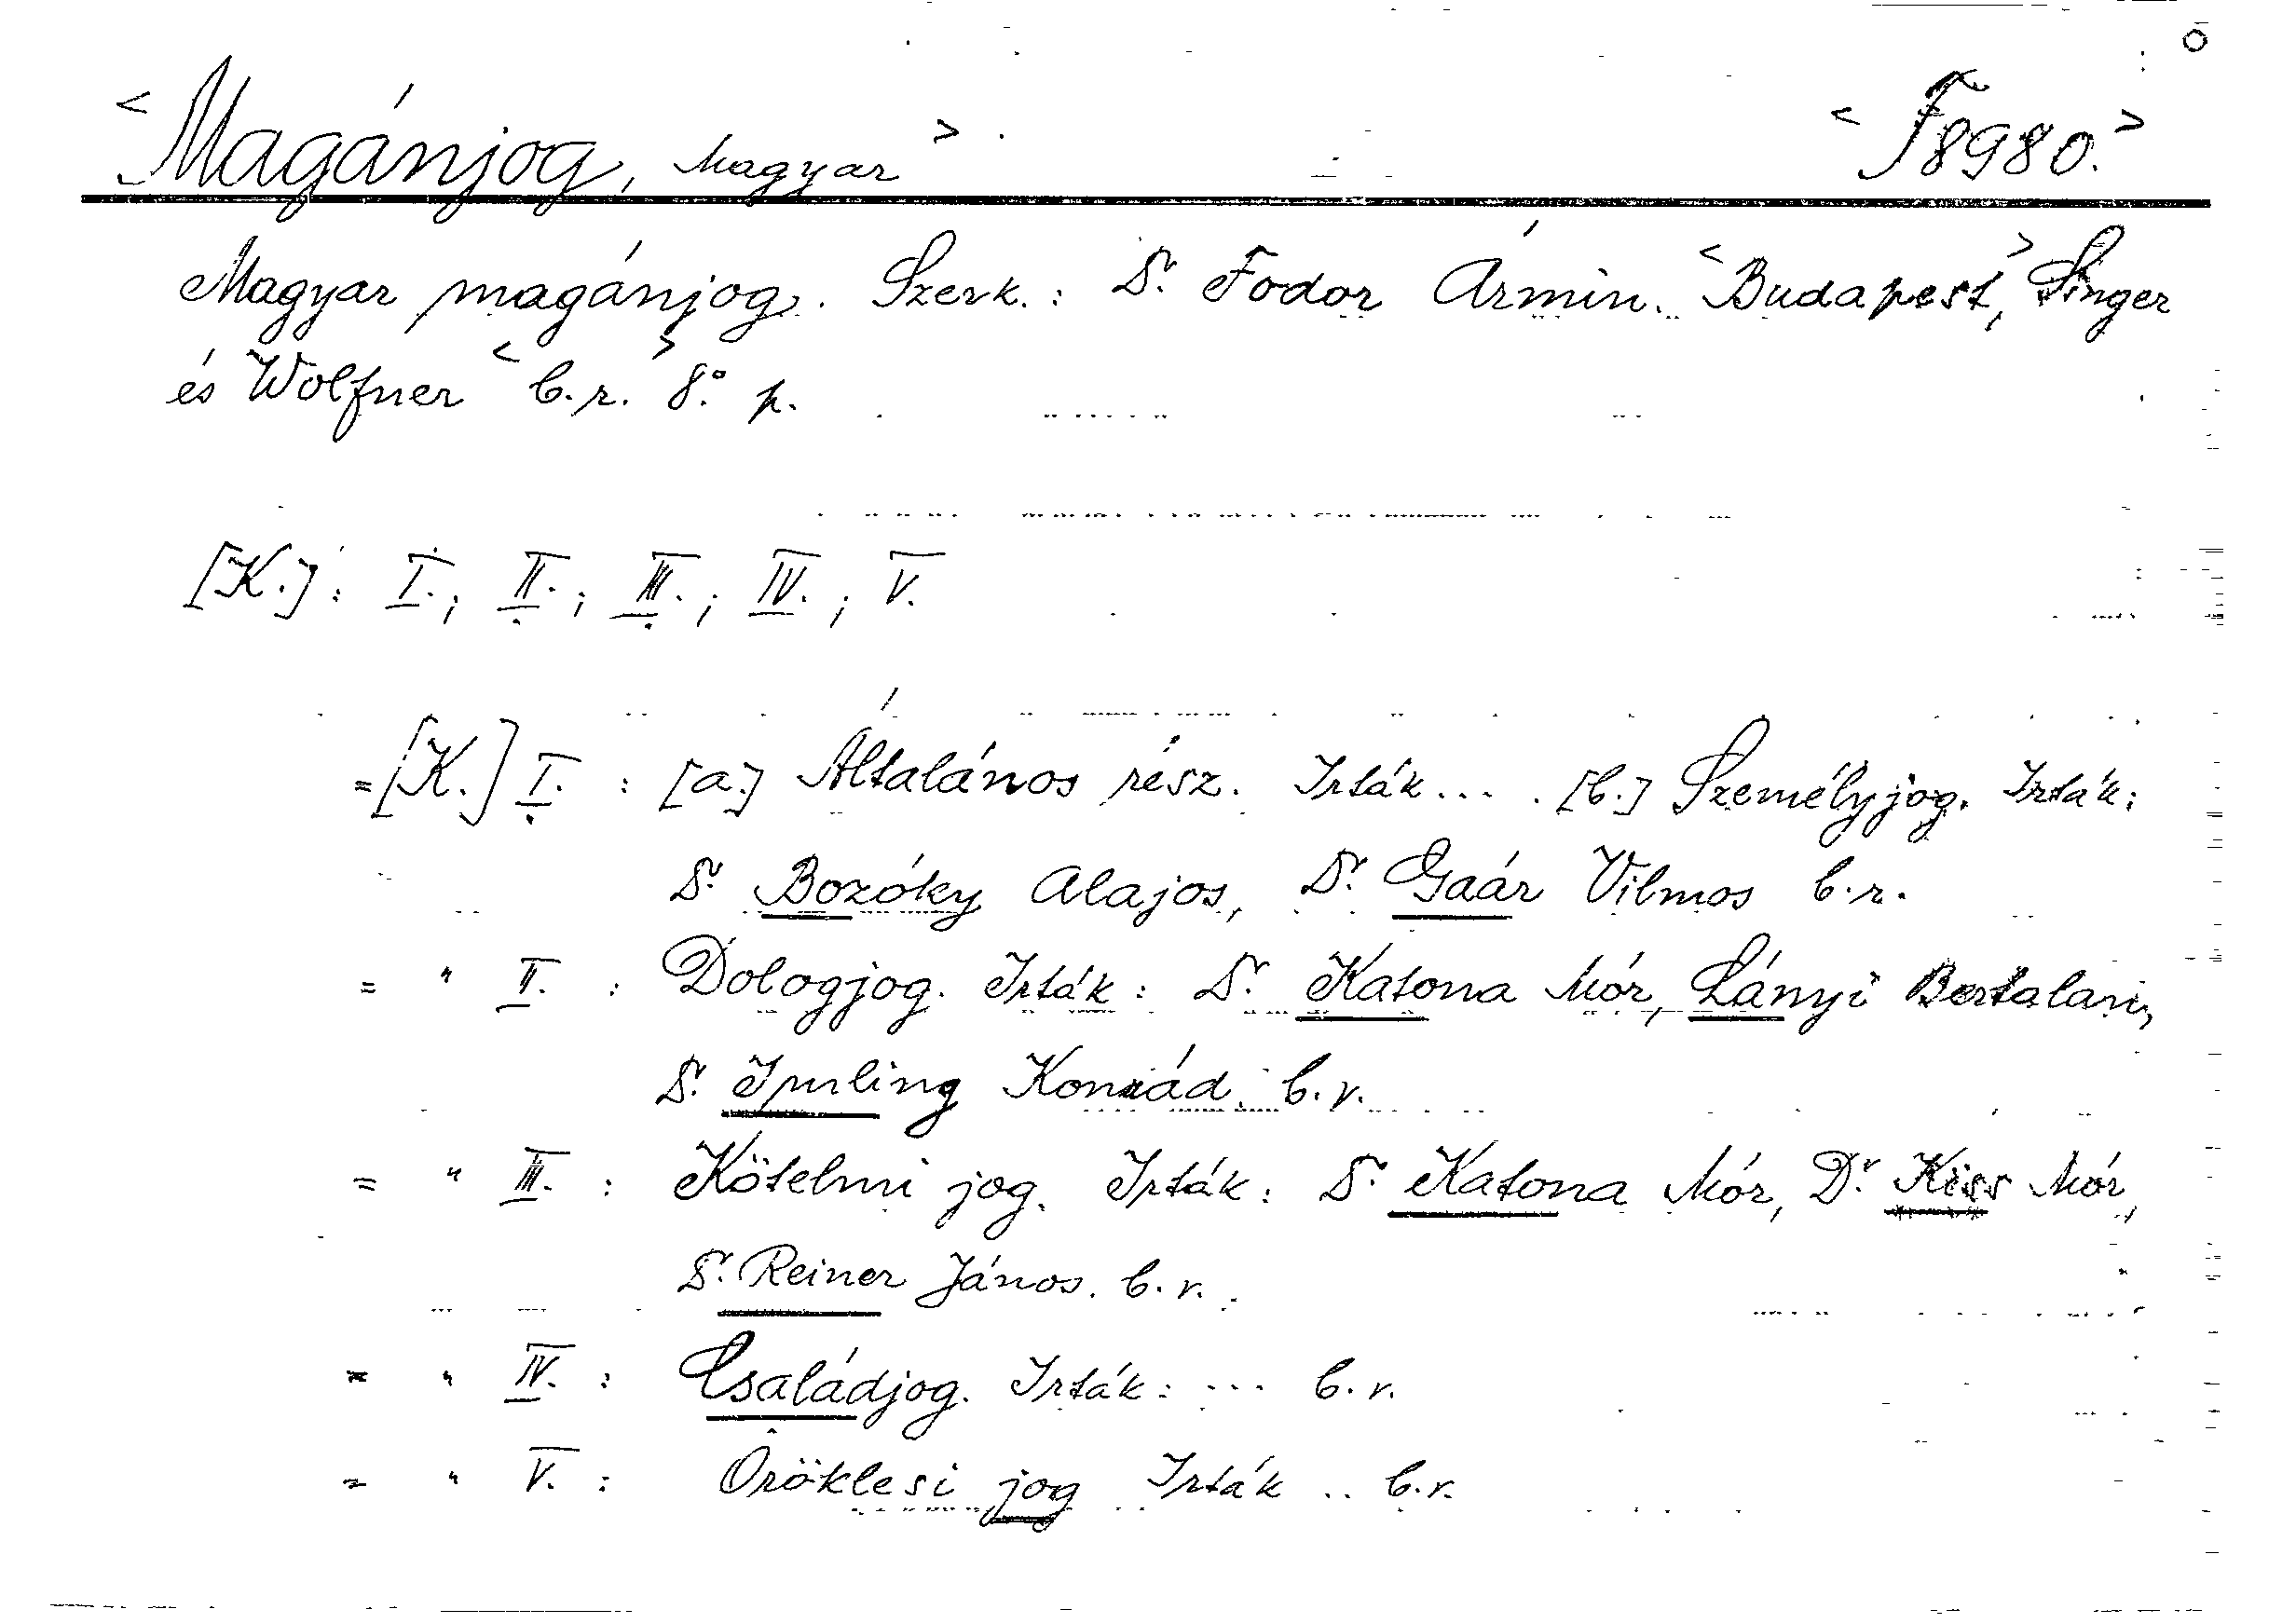 <Magánjog, Magyar>. <F8980.>
Magyar magánjog. Szerk.: Dr. Fodor Ármin. <Budapest,> Singer
és Wolfner <é.n.> 8.° p.
[K.]: I.; II.; III.; IV.; V.
=[K.] I. : [a.] Általános rész. Irták... . [b.] Személyjog. Irták:
Dr. Bozóky Alajos, Dr. Gaár Vilmos b.r.
= " II. : Dologjog. Irták: Dr. Katona Mór, Lányi Bertalan,
Dr. Imling Konrád. b.r.
= " III. : Kötelmi jog. Irták: Dr. Katona Mór, Dr. Kiss Mór,
Dr. Reiner János. b.r.
= " IV. : Családjog. Irták: ... b.r.
= " V. : Öröklesi jog Irták .. b.r.